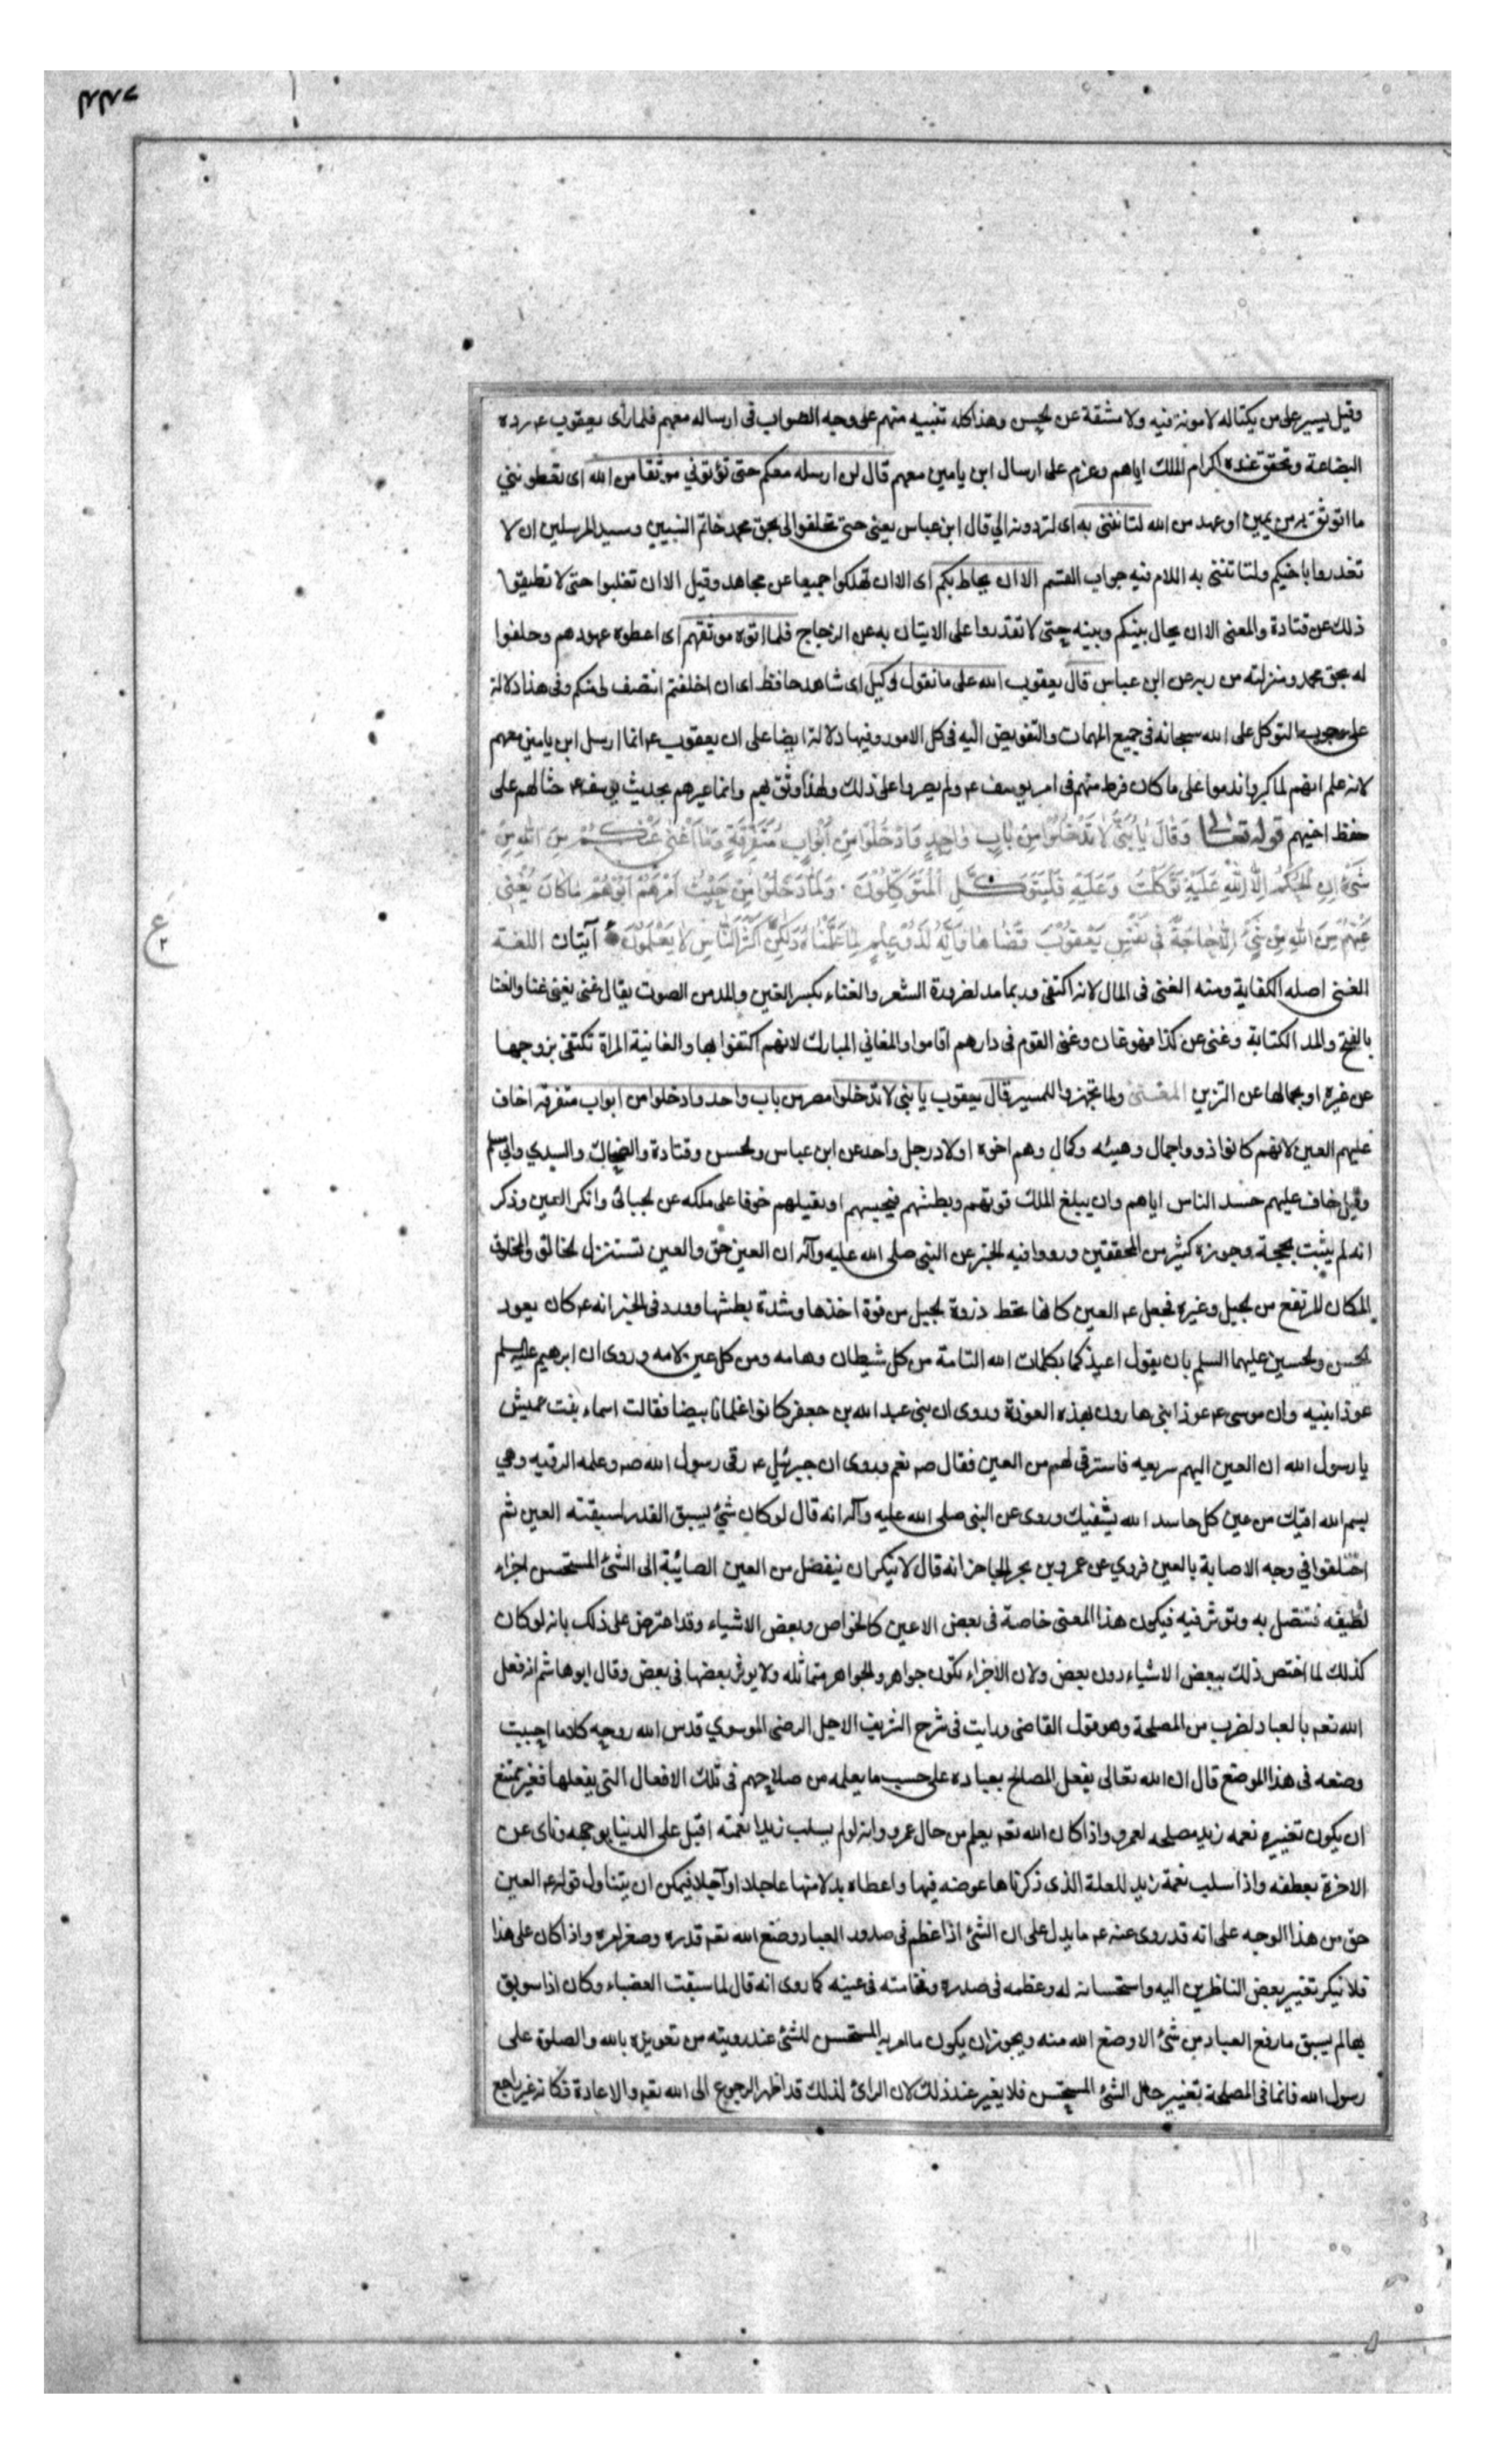 وقيل يسير على من يكتاله لا مونة فيه ولا مشقة عن الحسن وهذا كله تنبيه منهم على وجه الصواب فى ارساله معهم فلما رأى يعقوب ع رده
البضاعة وتحقق عنده اكرام الملك اياهم وعزم على ارسال ابن يامين معهم قال لن ارسله معكم حتى تؤتوني موثقا من الله اى تعطوننى
ما اتوثق به من يمين او عهد من الله لتاتننى به اى لتردونه الي قال ابن عباس يعنى حتى تحلفوا لى بحق محمد خاتم النبيين وسيد المرسلين ان لا
تغدروا باخيكم ولتاتننى به اللام فيه جواب القسم الا ان يحاط بكم اى الا ان تهلكوا جميعا عن مجاهد وقيل الا ان تغلبوا حتى لا تطيقوا
ذلك عن قتادة والمعنى الا ان يحال بينكم وبينه حتى لا تقدروا على الاتيان به عن الزجاج فلما اتوه موثقهم اى اعطوه عهودهم وحلفوا
له بحق محمد ومنزلته من ربه عن ابن عباس قال يعقوب الله على ما نقول وكيل اى شاهد حافظ اى ان اخلفتم انتصف لى منكم وفى هذا دلالة
على وجوب التوكل على الله سبحانه فى جميع المهمات والتفويض اليه فى كل الامور وفيها دلالة ايضا على ان يعقوب ع انما ارسل ابن يامين معهم
لانه علم انهم لما كبروا ندموا على ما كان فرط منهم فى امر يوسف ع ولم يصروا على ذلك ولهذا وثق بهم وانما عيرهم بحديث يوسف ع حثا لهم على
حفظ اخيهم قوله تعالى وَقَالَ يَا بُنَىَّ لَا تَدْخُلُوا مِنْ بَابٍ وَاحِدٍ وَادْخُلُوا مِنْ أَبْوَابٍ مُتَفَرِّقَةٍ وَمَا أُغْنِى عَنْكُمْ مِنَ اللهِ مِنْ
شَىْءٍ اِنِ الْحُكْمُ اِلَّا لِلّهِ عَلَيْهِ تَوَكَّلْتُ وَعَلَيْهِ فَلْيَتَوَكَّلِ الْمُتَوَكِّلُونَ وَلَمَّا دَخَلُوا مِنْ حَيْثُ اَمَرَهُمْ اَبُوهُمْ مَا كَانَ يُغْنِى
عَنْهُمْ مِنَ اللهِ مِنْ شَىْءٍ اِلَّا حَاجَةً فِى نَفْسِ يَعْقُوبَ قَضَاهَا وَاِنَّهُ لَذُو عِلْمٍ لِمَا عَلَّمْنَاهُ وَلَكِنَّ اَكْثَرَ النَّاسِ لَا يَعْلَمُونَ آيتان اللغة
الغنى اصله الكفاية ومنه الغنى فى المال لانه اكتفى وربما مد لضرورة الشعر والغناء بكسر الغين والمد من الصوت يقال غنى يغنى غنا والغنا
بالفتح والمد الكتابة وغنى عن كذا فهو غان وغنى القوم فى دارهم اقاموا والمغاني المبارك لانهم اكتفوا بها والغانية المراة تكتفى بزوجها
عن غيره او بجمالها عن التزين المعنى ولما تجهزوا للمسير قال يعقوب يا بنى لا تدخلوا مصر من باب واحد وادخلوا من ابواب متفرقه اخاف
عليهم العين لانهم كانوا ذوو اجمال وهيئه وكمال وهم اخوة اولاد رجل واحد عن ابن عباس والحسن وقتادة والضحاك والسدي وابي مسلم
وقيل خاف عليهم حسد الناس اياهم وان يبلغ الملك قوتهم وبطشهم فيحبسهم او يقتلهم خوفا على ملكه عن الجبائى وانكر العين وذكر
انه لم يثبت بحجة وجوزه كثير من المحققين ورووا فيه الخبر عن النبى صلى الله عليه وآله ان العين حق والعين تستنزل الحالق والحالق
المكان المرتفع من الجبل وغيره فجعل ع العين كانها تحط ذروة الجبل من قوة اخذها وشدة بطشها وورد فى الخبر انه ع كان يعوذ
الحسن والحسين عليهما السلم بان يقول اعيذكما بكلمات الله التامة من كل شيطان وهامه ومن كل عين لامه وروى ان ابرهيم عليه السلم
عوذ ابنيه وان موسى ع عوذ ابنى هارون بهذه العوذة وروى ان بنى عبد الله بن جعفر كانوا غلمانا بيضا فقالت اسماء بنت عميش
يا رسول الله ان العين اليهم سريعه فاسترقى لهم من العين فقال ص نعم وروى ان جبرئيل ع رقى رسول الله ص وعلمه الرقيه وهي
بسم الله ارقيك من عين كل حاسد الله يشفيك وروى عن النبى صلى الله عليه وآله انه قال لو كان شئ يسبق القدر لسبقته العين ثم
اختلفوا في وجه الاصابة بالعين فروي عن عمرو بن بحر الجاحز انه قال لا ينكر ان ينفصل من العين الصائبة الى الشئ المستحسن اجزاء
لطيفه فتتصل به وتوثر فيه فيكون هذا المعنى خاصة فى بعض الاعين كالخواص وبعض الاشياء وقد اعترض على ذلك بانه لو كان
كذلك لما اختص ذلك ببعض الاشياء دون بعض ولان الاجزاء تكون جواهر والجواهر متماثله ولا يوثر بعضها فى بعض وقال ابو هاشم انه فعل
الله تعم بالعباد لضرب من المصلحة وهو قول القاضى ورايت فى شرح الشريف الاجل الرضى الموسوي قدس الله روحه كلاما احببت
وضعه فى هذا الموضع قال ان الله تعالى يفعل المصالح بعباده على حسب ما يعلمه من صلاحهم فى تلك الافعال التى يفعلها فغير ممتنع
ان يكون تغييره نعمه زيد مصلحه لعمرو واذا كان الله تعم يعلم من حال عمرو وانه لو لم يسلب زيدا نعمته اقبل على الدنيا بوجهه ونأى عن
الاخرة بعطفه واذا سلب نعمة زيد للعلة الذى ذكرناها عوضه فيها واعطاه بدلا منها عاجلا او آجلا فيمكن ان يتناول قوله ع العين
حق من هذا الوجه على انه قد روى عنه ع ما يدل على ان الشئ اذا عظم فى صدور العباد وضع الله تعم قدره وصغر امره واذا كان على هذا
فلا ينكر تغيير بعض الناظرين اليه واستحسانه له وعظمه فى صدره وفخامته فى عينه كما روى انه قال لما سبقت العضباء وكان اذا سوبق
بها لم يسبق ما رفع العباد من شئ الا وضع الله منه ويجوز ان يكون ما امر به المستحسن للشئ عند رويته من تعويذه بالله والصلوة على
رسول الله قائما فى المصلحة بتغيير حال الشئ المستحسن فلا يغير عند ذلك لان الرائ لذلك قد اظهر الرجوع الى الله تعم والاعاذة فكانه غير راجع
ع
٢